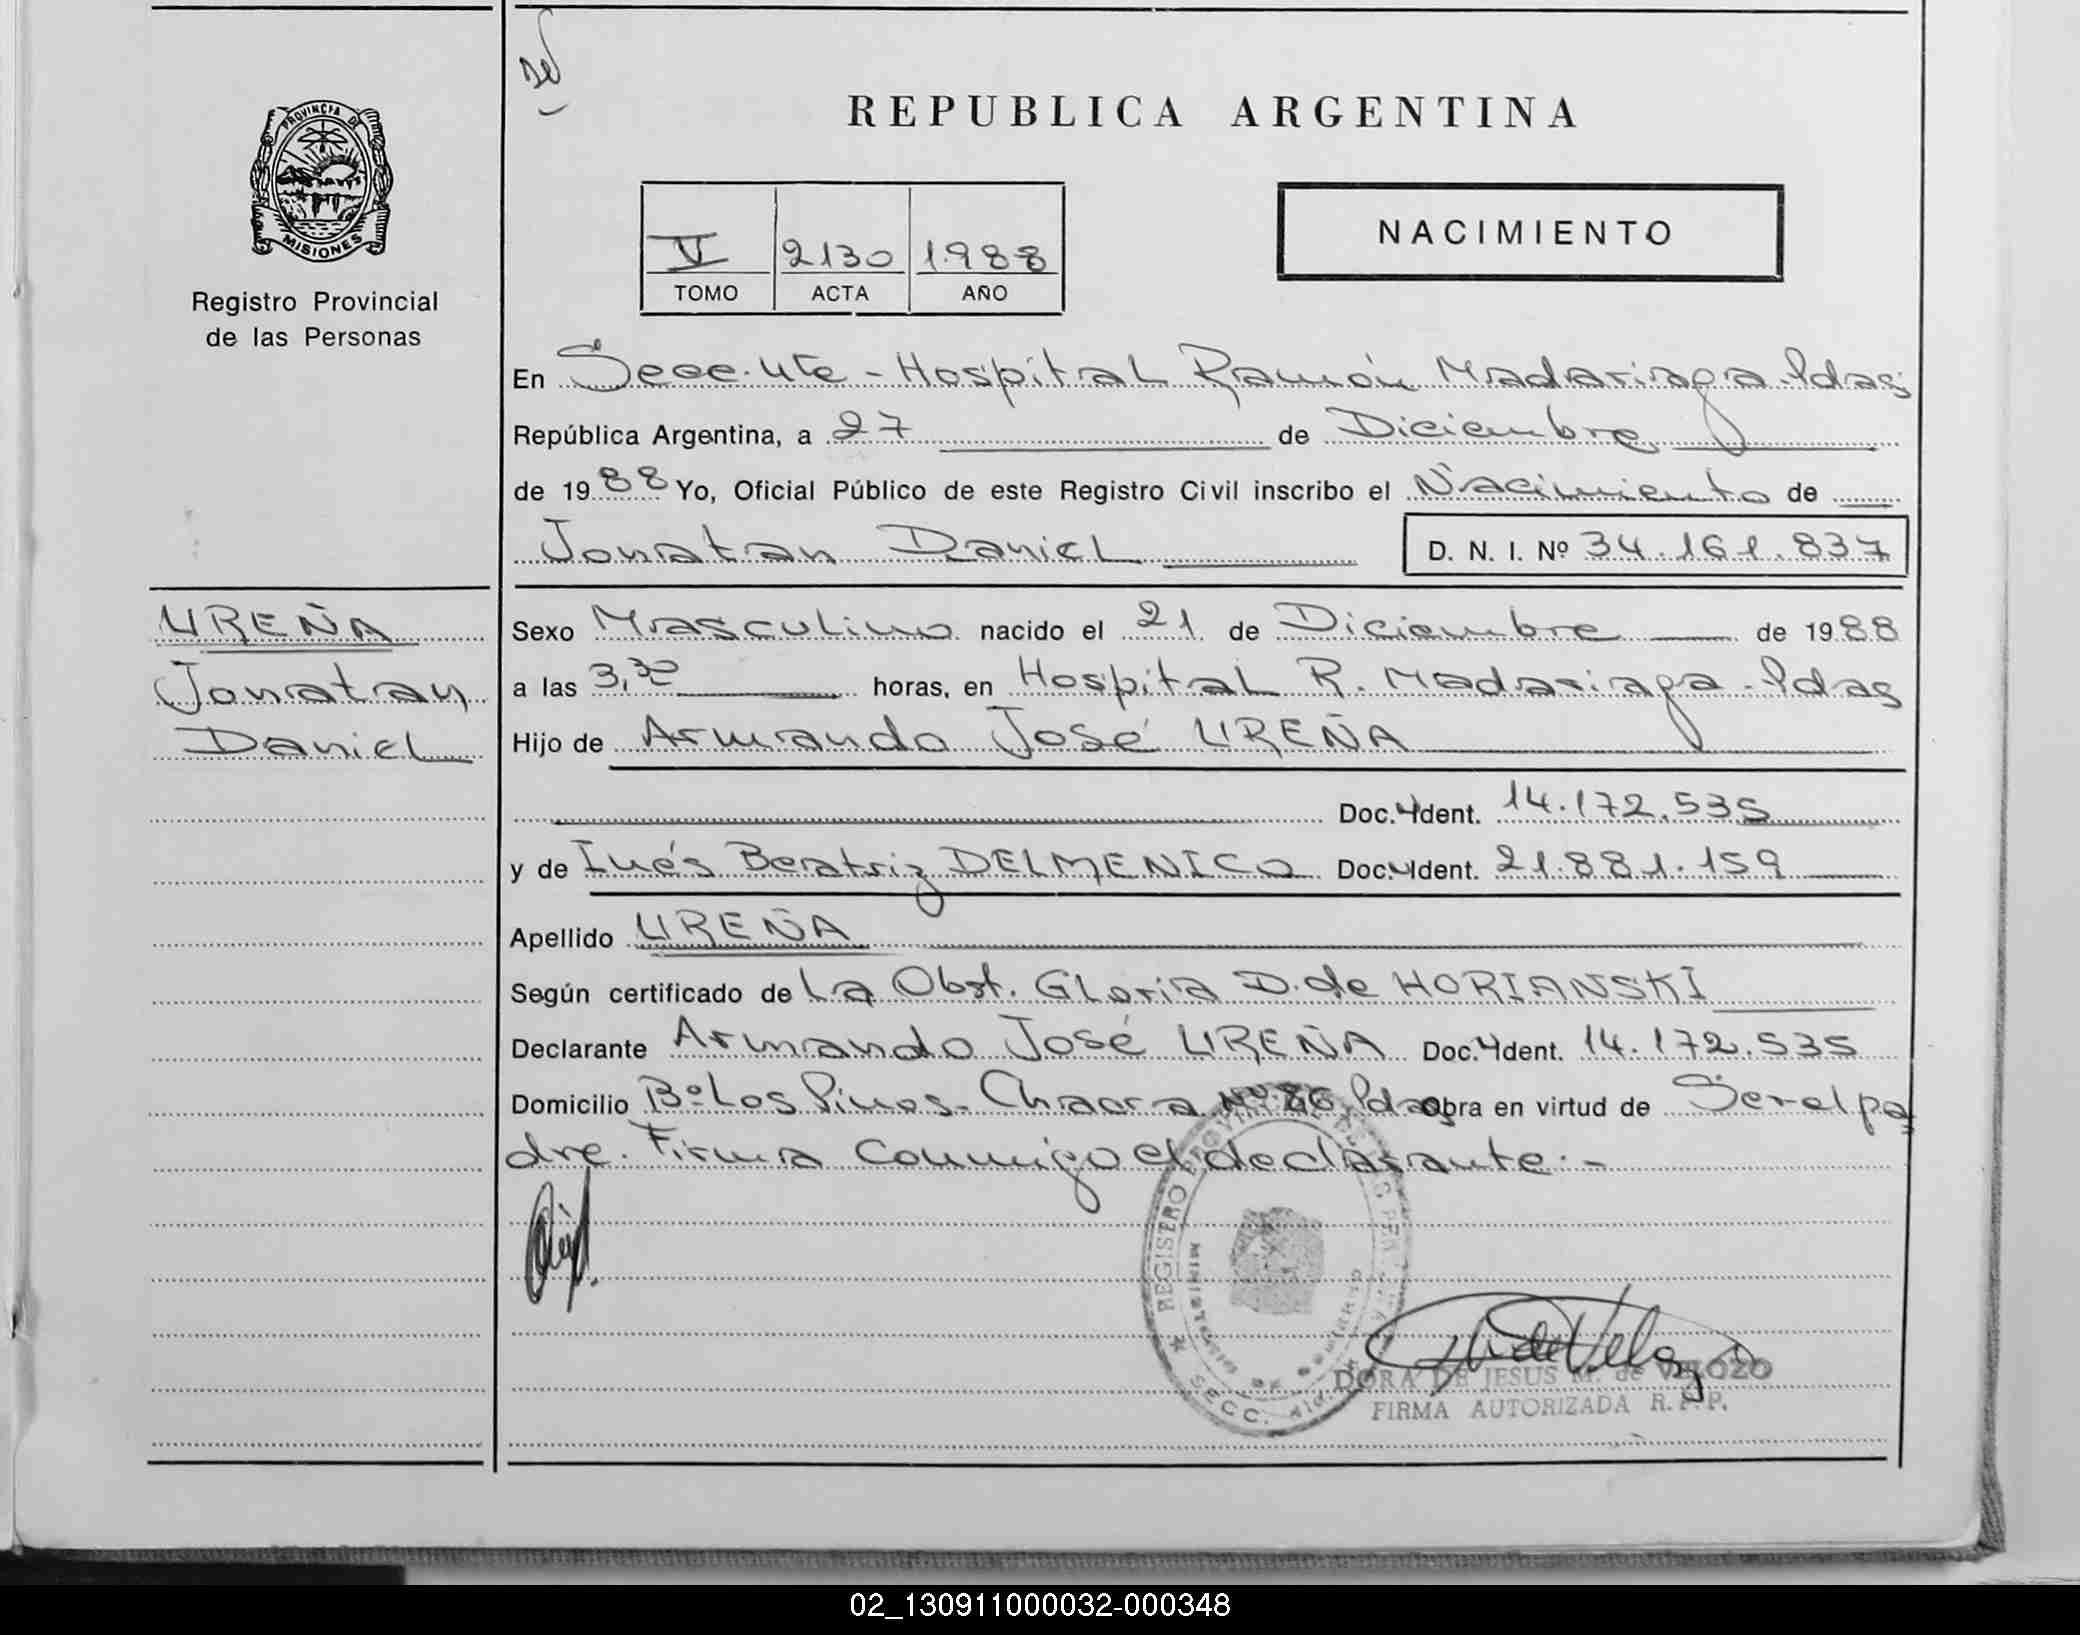 REPUBLICA ARGENTINA
PROVINCIA DE
MISIONES
Registro Provincial
de las Personas
V 2130 1988
TOMO ACTA AÑO
NACIMIENTO
En Secc. 4ta - Hospital Ramón Madariaga - Pdas
República Argentina, a 27 de Diciembre
de 1988 Yo, Oficial Público de este Registro Civil inscribo el Nacimiento de
Jonatan Daniel D. N. I. Nº 34.161.837
UREÑA
Jonatan
Daniel
Sexo Masculino nacido el 21 de Diciembre de 1988
a las 3,30 horas, en Hospital R. Madariaga - Pdas
Hijo de Armando José UREÑA
Doc. Ident. 14.172.535
y de Inés Beatriz DELMENICO Doc. Ident. 21.881.159
Apellido UREÑA
Según certificado de La Obst. Gloria D. de HORIANSKI
Declarante Armando José UREÑA Doc. Ident. 14.172.535
Domicilio Bº Los Pinos - Chacra Nº 86 Pdas Obra en virtud de Ser el pa
dre. Firma conmigo el declarante.-
REGISTRO PROVINCIAL DE LAS PERSONAS
MINISTERIO DE GOBIERNO
SECC.
DORA DE JESUS M. de VELOZO
FIRMA AUTORIZADA R. P. P.
02_130911000032-000348